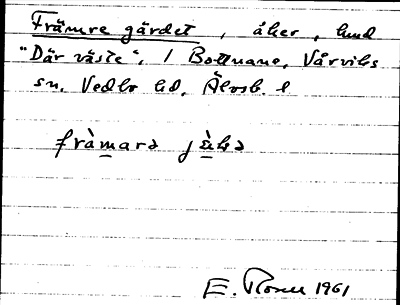 Främre gärdet, åker, hmd
"Där väste", 1 Bottnane, Vårviks
sn, Vedbo hd, Älvsb. l
främara
E. 1961